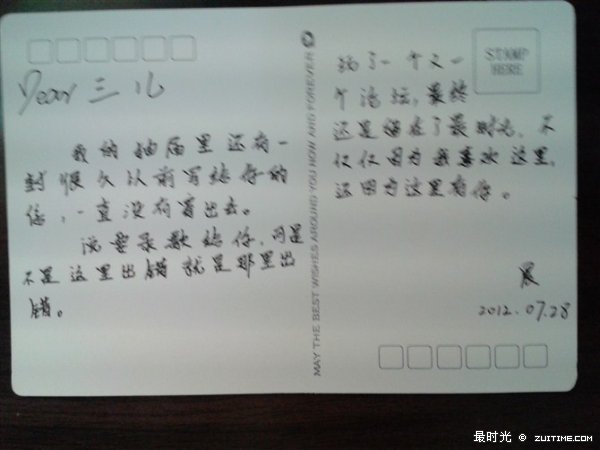 Dear 三儿
我的抽屉里还有一
封很久以前写给你的
信,一直没有寄出去。
说要录歌给你,可是
不是这里出错就是那里出
错。
MAY THE BEST WISHES AROUND YOU NOW AND FOREVER
STAMP
HERE
玩了一个又一
个论坛,最终
还是留在了最时光,不
仅仅因为我喜欢这里,
还因为这里有你。
2012.07.28
最时光 @ ZUITIME.COM